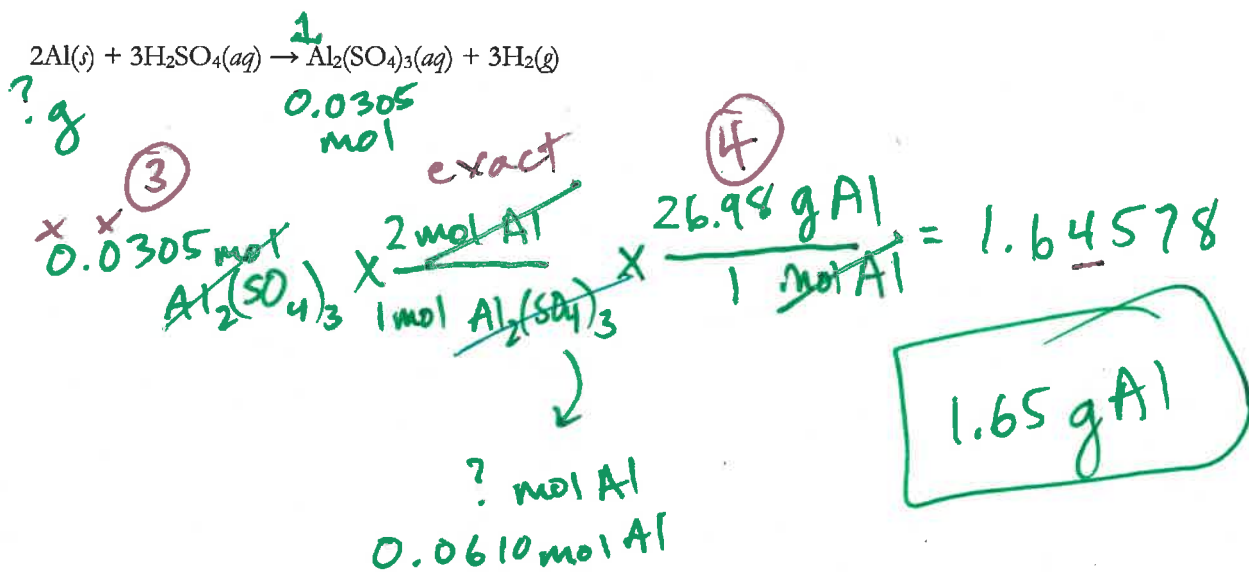 1
2Al(s) + 3H₂SO₄(aq) → Al₂(SO₄)₃(aq) + 3H₂(g)
? g
0.0305
mol
3
exact
4
x x
0.0305 mol Al₂(SO₄)₃ x 2 mol Al / 1 mol Al₂(SO₄)₃ x 26.98 g Al / 1 mol Al = 1.64578
1.65 g Al
? mol Al
0.0610 mol Al